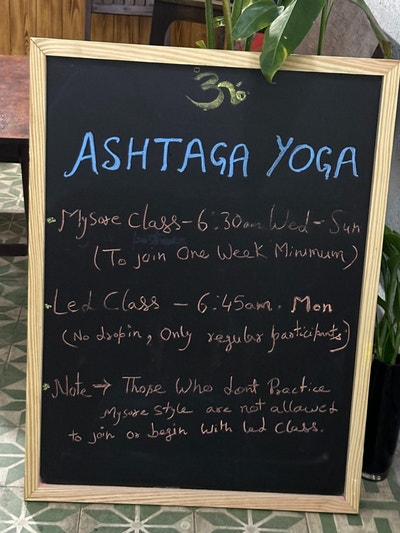 ॐ
ASHTAGA YOGA
Mysore Class - 6:30am Wed - Sun
(To join One Week Minimum)
Led Class - 6:45am. Mon
(No dropin, Only regular participants)
Note → Those Who dont Practice
Mysore style are not allowed
to join or begin with led class.